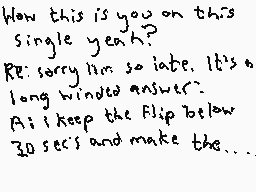 Wow this is you on this
single yeah?
Re: sorry I'm so late. It's a
long winded answer:
A: i keep the flip below
30 sec's and make the....